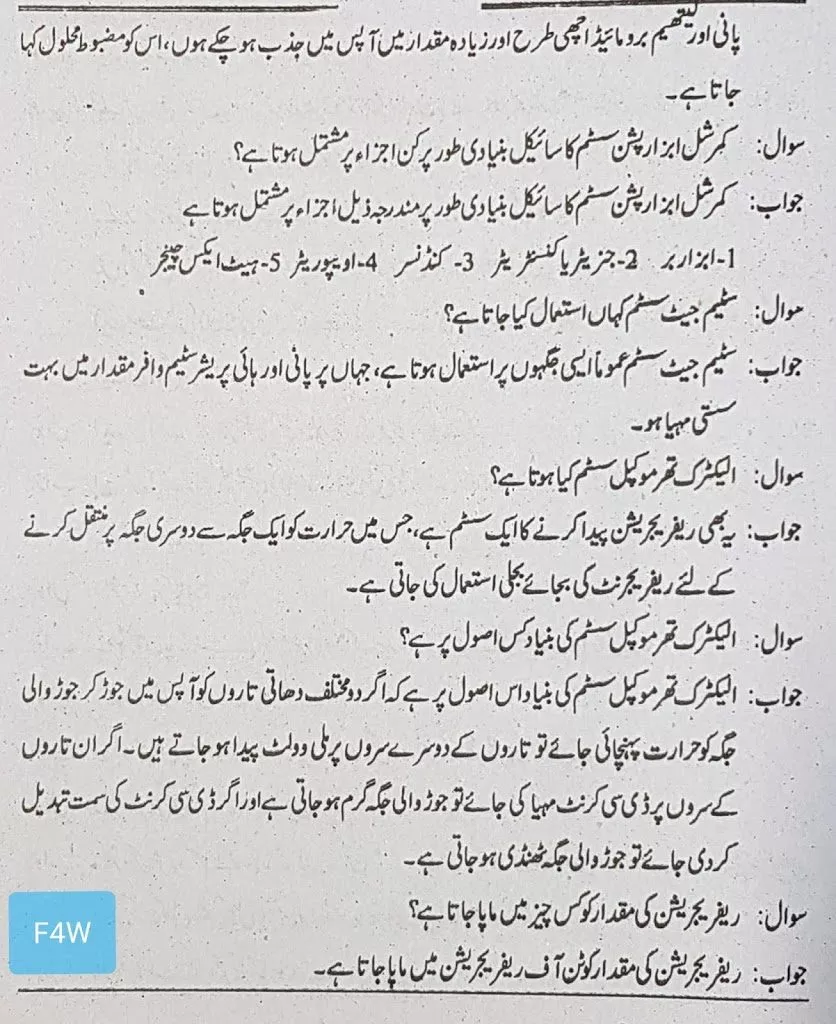 پانی اور لیتھیم برومائیڈ اچھی طرح اور زیادہ مقدار میں آپس میں جذب ہو چکے ہوں، اس کو مضبوط محلول کہا
جاتا ہے۔
سوال: کمرشل ابزارپشن سسٹم کا سائیکل بنیادی طور پر کن اجزاء پر مشتمل ہوتا ہے؟
جواب: کمرشل ابزارپشن سسٹم کا سائیکل بنیادی طور پر مندرجہ ذیل اجزاء پر مشتمل ہوتا ہے
1-ابزاربر 2-جنریٹر یا کنسنٹریٹر 3- کنڈنسر 4-اویپوریٹر 5-ہیٹ ایکس چینجر
سوال: سٹیم جیٹ سسٹم کہاں استعمال کیا جاتا ہے؟
جواب: سٹیم جیٹ سسٹم عموماً ایسی جگہوں پر استعمال ہوتا ہے، جہاں پر پانی اور ہائی پریشر سٹیم وافر مقدار میں بہت
سستی مہیا ہو۔
سوال: الیکٹرک تھرموکپل سسٹم کیا ہوتا ہے؟
جواب: یہ بھی ریفریجریشن پیدا کرنے کا ایک سسٹم ہے، جس میں حرارت کو ایک جگہ سے دوسری جگہ پر منتقل کرنے
کے لئے ریفریجرنٹ کی بجائے بجلی استعمال کی جاتی ہے۔
سوال: الیکٹرک تھرموکپل سسٹم کی بنیاد کس اصول پر ہے؟
جواب: الیکٹرک تھرموکپل سسٹم کی بنیاد اس اصول پر ہے کہ اگر دو مختلف دھاتی تاروں کو آپس میں جوڑ کر جوڑ والی
جگہ کو حرارت پہنچائی جائے تو تاروں کے دوسرے سروں پر ملی وولٹ پیدا ہو جاتے ہیں۔ اگر ان تاروں
کے سروں پر ڈی سی کرنٹ مہیا کی جائے تو جوڑ والی جگہ گرم ہو جاتی ہے اور اگر ڈی سی کرنٹ کی سمت تبدیل
کر دی جائے تو جوڑ والی جگہ ٹھنڈی ہو جاتی ہے۔
سوال: ریفریجریشن کی مقدار کو کس چیز میں ماپا جاتا ہے؟
جواب: ریفریجریشن کی مقدار کو ٹن آف ریفریجریشن میں ماپا جاتا ہے۔
F4W